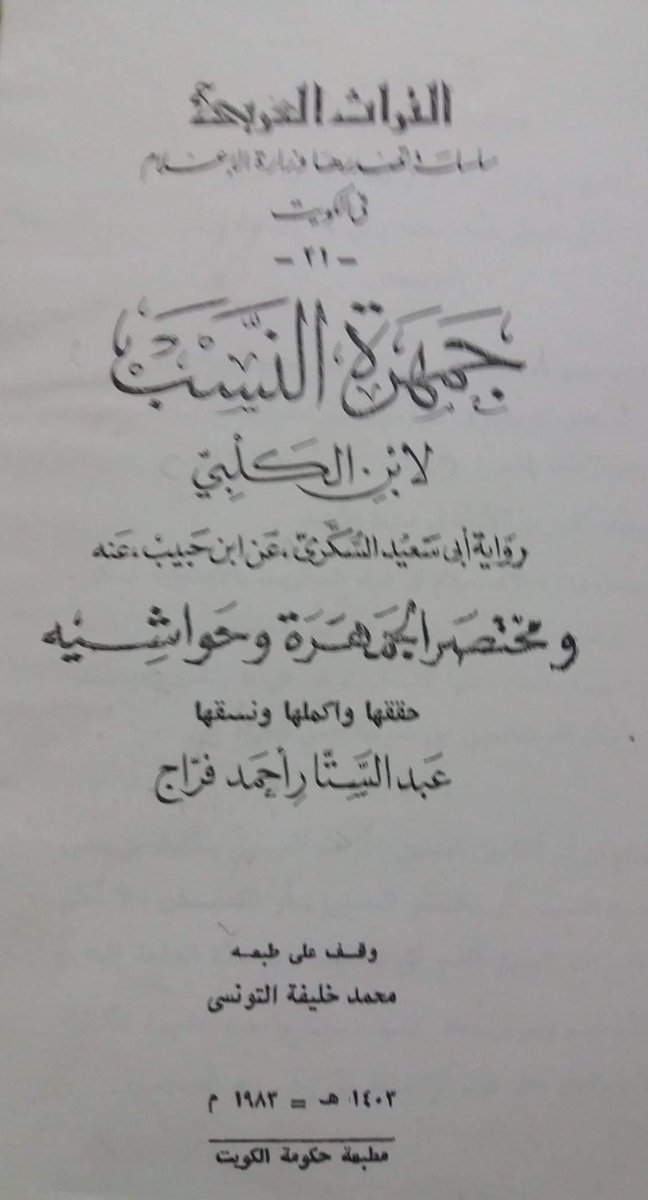 التراث العربي
سلسلة تصدرها وزارة الإعلام
في الكويت
- ٢١ -
جَمْهَرَة النَّسَبْ
لابن الكَلْبيّ
روَاية أبى سَعيْد السُّكرىّ، عَن ابن حَبيبْ، عَنه
ومختصَر الجَمهَرَة وحَواشِيه
حققها واكملها ونسقها
عَبد السَّتَّار أحمَد فرّاج
وقف على طبعه
محمد خليفة التونسى
١٤٠٣ هـ = ١٩٨٣ م
مطبعة حكومة الكويت